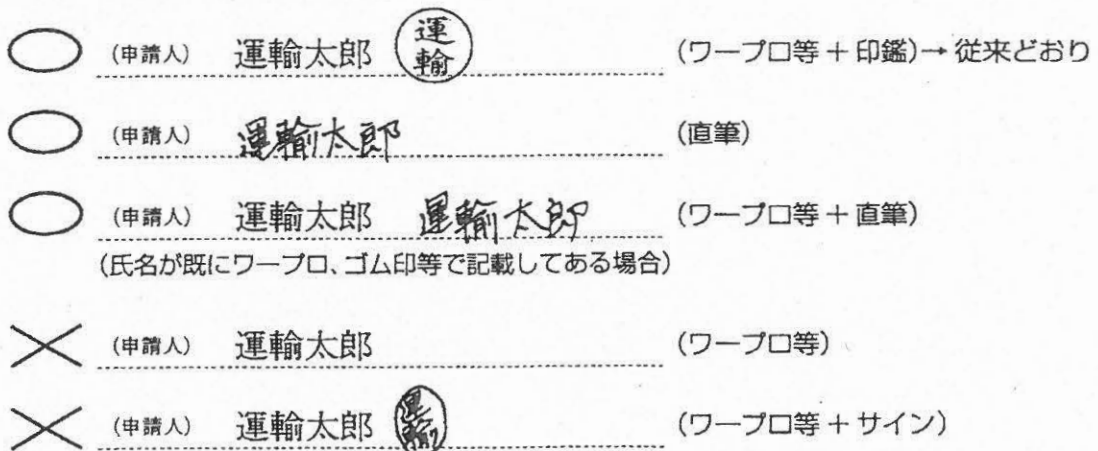 (申請人) 運輸太郎 運輸 (ワープロ等+印鑑)→従来どおり
(申請人) 運輸太郎 (直筆)
(申請人) 運輸太郎 運輸太郎 (ワープロ等+直筆)
(氏名が既にワープロ、ゴム印等で記載してある場合)
(申請人) 運輸太郎 (ワープロ等)
(申請人) 運輸太郎 運輸 (ワープロ等+サイン)